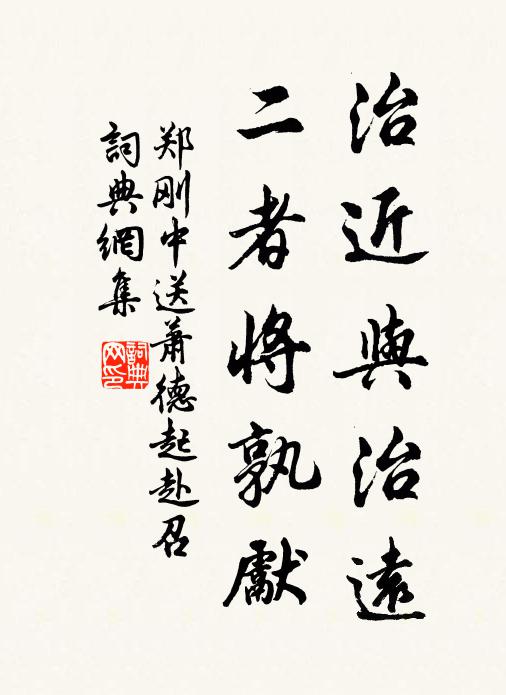 治近與治遠
二者將孰獻
郑刚中送蕭德起赴召
詞典網集
詞典网印